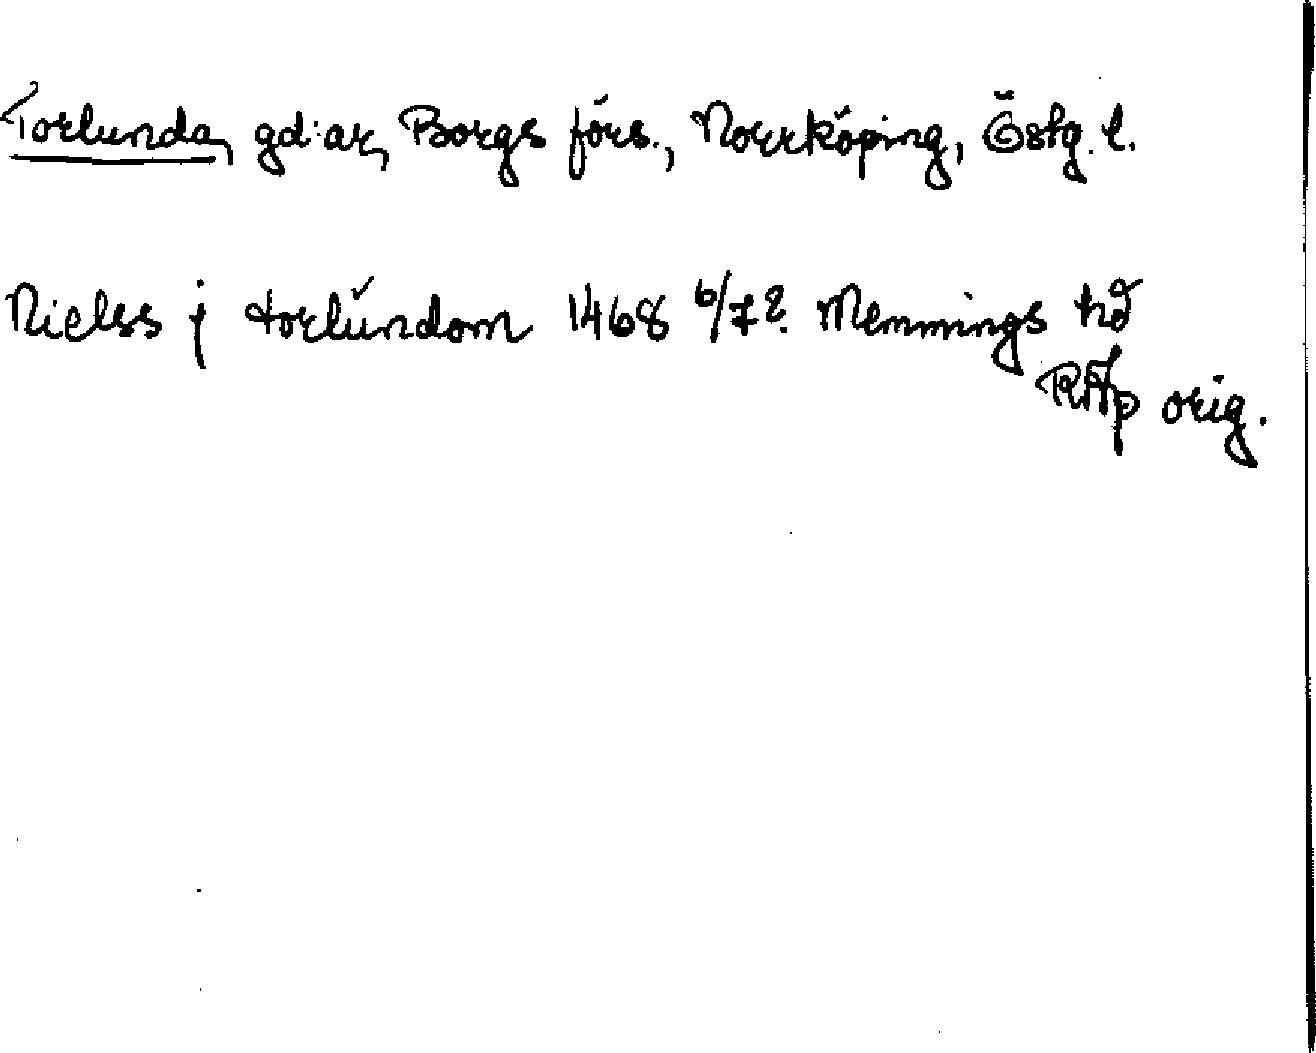 Torlunda, gd:ar, Borgs förs., Norrköping, Östg. l.
Nielss j torlundom 1468 6/7? Memmings hd
RAp orig.